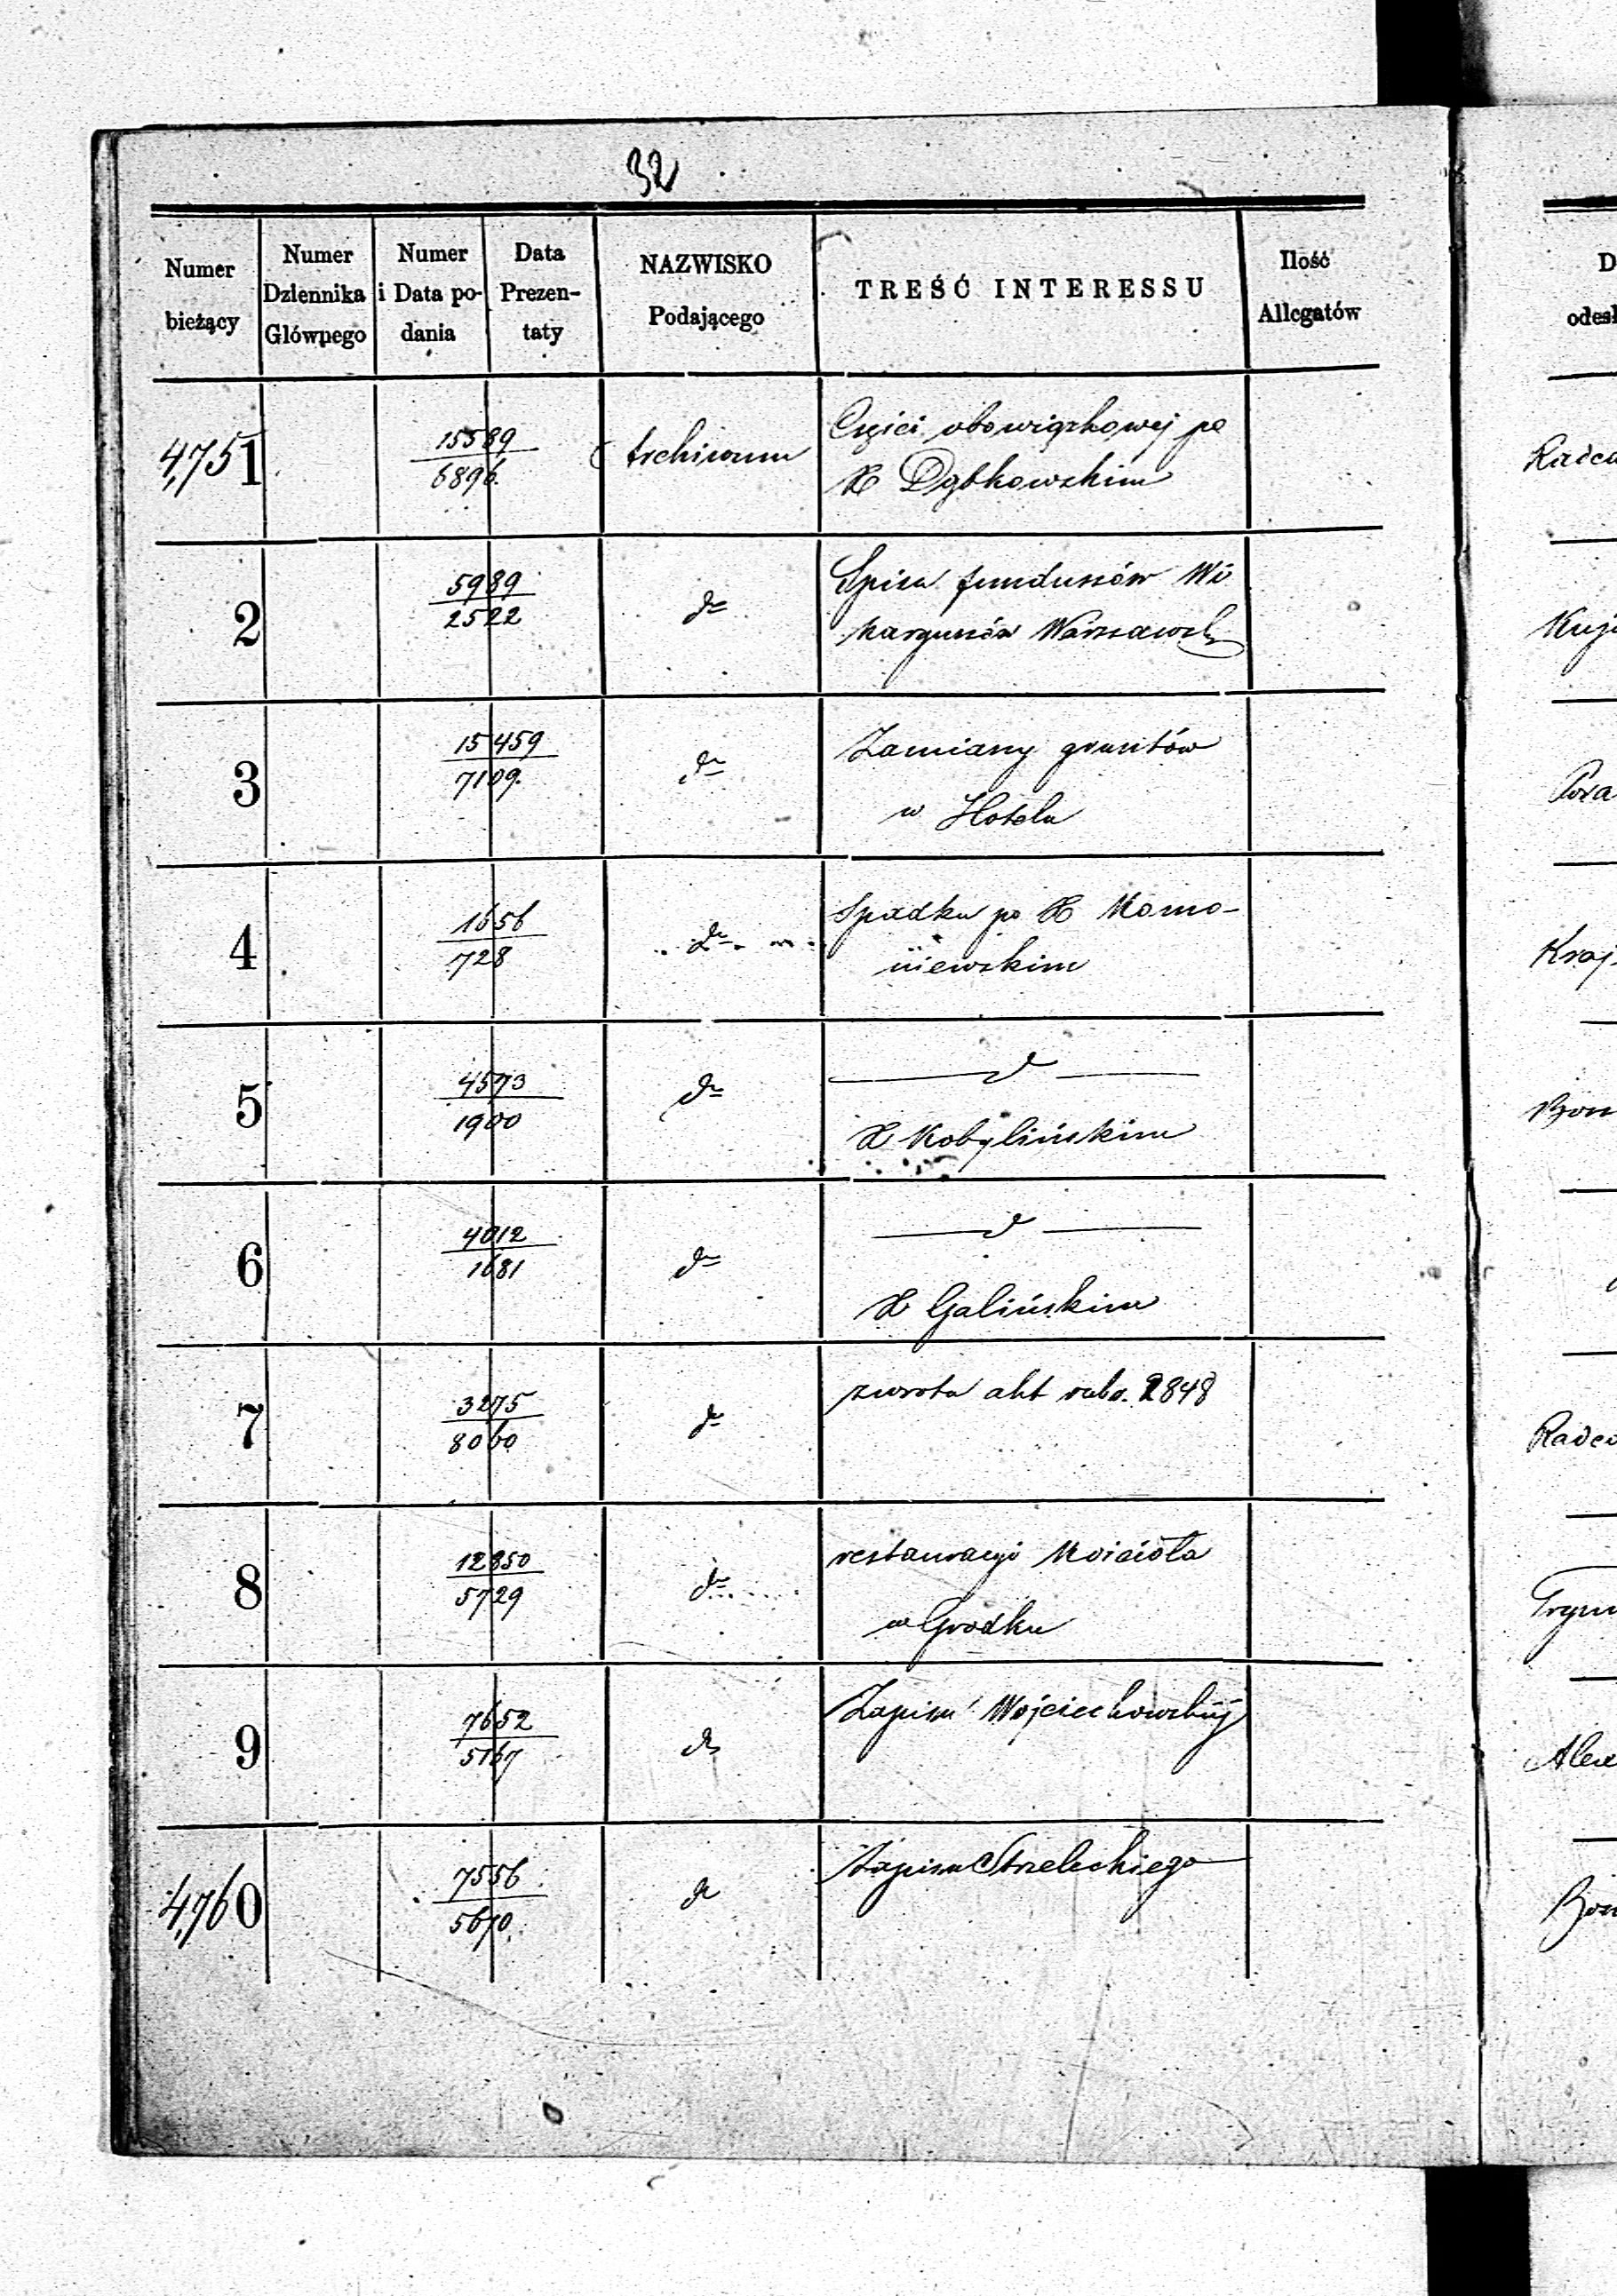 32
Numer bieżący | Numer Dziennika Głównego | Numer i Data podania | Data Prezentaty | NAZWISKO Podającego | TREŚĆ INTERESSU | Ilość Allegatów
4,751 | 15589 / 6896. | Archiwum | Części obowiązkowej po
X Dąbkowskim
2 | 5989 / 2522 | do | Spisu funduszów Wi
karyuszów Warszawsk
3 | 15459 / 7109. | do | Zamiany gruntów
w Hotelu
4 | 1656 / 728 | do | Spadku po X
niewskim
5 | 4573 / 1900 | do | — d —
X Kobylińskim
6 | 4012 / 1681 | do | — d —
X Galińskim
7 | 3275 / 8060 | do | zwrotu akt rubr. 2848
8 | 12850 / 5729 | do | restauracyi Kościoła
w Grodku
9 | 7652 / 5167 | do | Zapisu Wojciechowskiej
4,760 | 7556 / 5670. | do | Zapisu Strzeleckiego